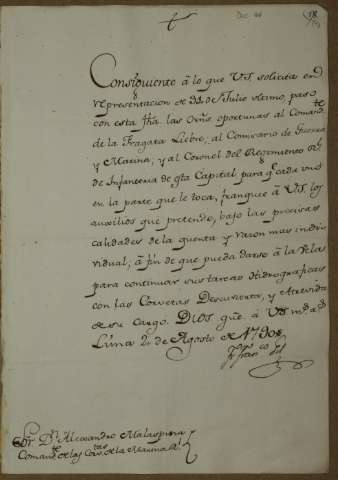 Doc. 44
18
Consiguiente á lo que VS solicita en
representacion de 31 de Julio ultimo, paso
con esta fha. las orns. oportunas al Comandte.
de la Fragata Liebre, al Comisario de Guerra
y Marina, y al Coronel del Regimiento Rl.
de Infanteria de esta Capital para q. cada uno
en la parte que le toca, franquee á VS los
auxilios que pretende, bajo las precisas
calidades de la quenta y razon mas indi-
vidual, á fin de que pueda darse á la vela
para continuar sus tareas Hidrograficas
con las Corvetas Descuvierta, y Atrevida
de su cargo. Dios gue. á VS ms. as.
Lima 2 de Agosto de 1790
Fr. Franco. Gil
Sor. Dn. Alexandro Malaspina
Comandte. de las Corvtas. de la Marina Rl.